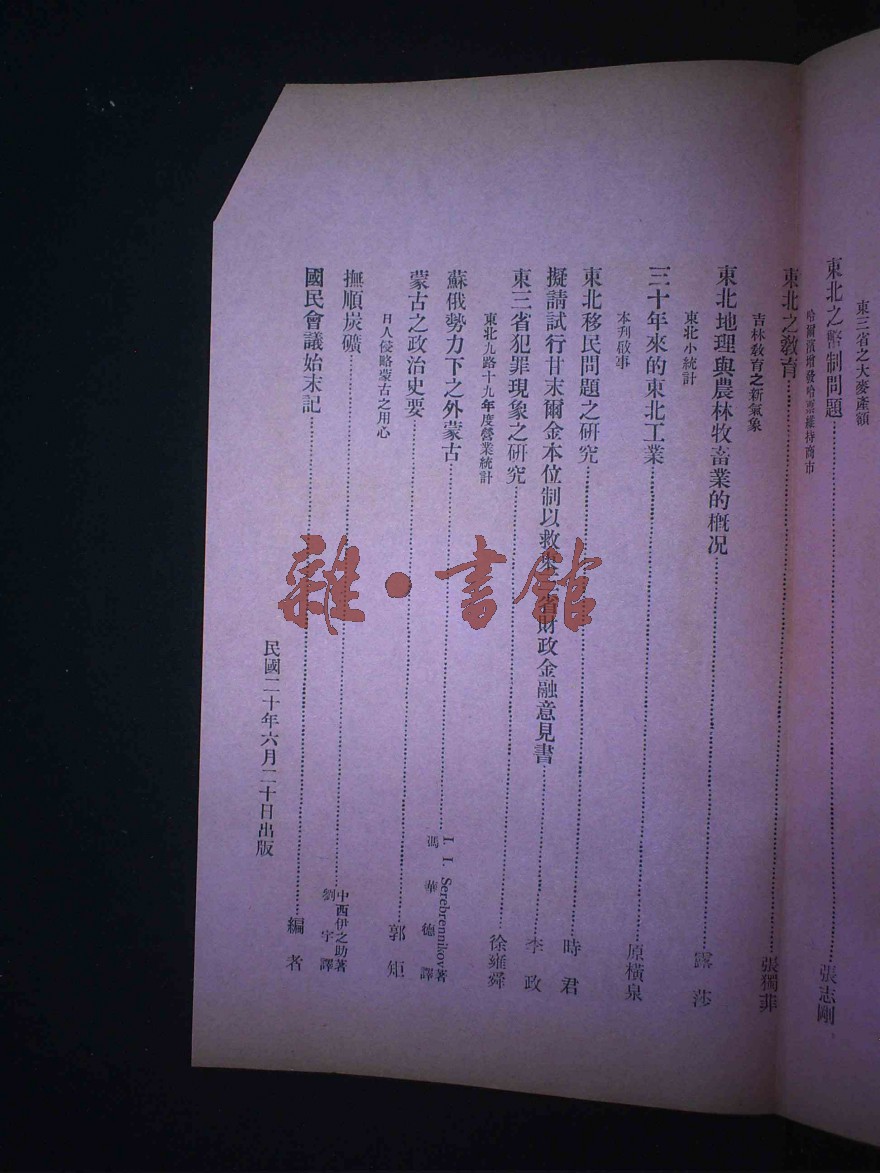 東三省之大麥產額
東北之幣制問題……張志剛
哈爾濱增發哈票維持商市
東北之教育……張獨菲
吉林教育之新氣象
東北地理與農林牧畜業的概況……露莎
東北小統計
三十年來的東北工業……原橫泉
本刋啟事
東北移民問題之研究……時君
擬請試行甘末爾金本位制以救東三省財政金融意見書……李政
東三省犯罪現象之研究……徐雍舜
東北九路十九年度營業統計
蘇俄勢力下之外蒙古……I. I. Serebrennikov著
馮華德譯
蒙古之政治史要……郭矩
日人侵略蒙古之用心
撫順炭礦……中西伊之助著
劉宇譯
國民會議始末記……編者
民國二十年六月二十日出版
雜·書館